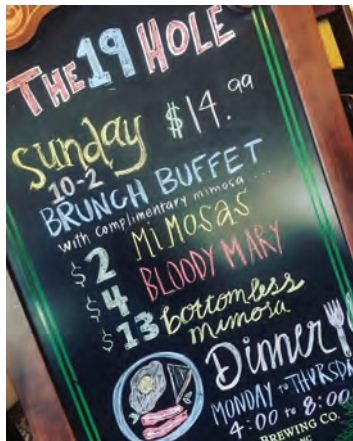 THE 19 HOLE
Sunday $14.99
10-2
BRUNCH BUFFET
with complimentary mimosa....
$2 MIMOSAS
$4 BLOODY MARY
$13 bottomless
mimosa
Dinner
MONDAY to THURSDA
4:00 to 8:00
BREWING CO.